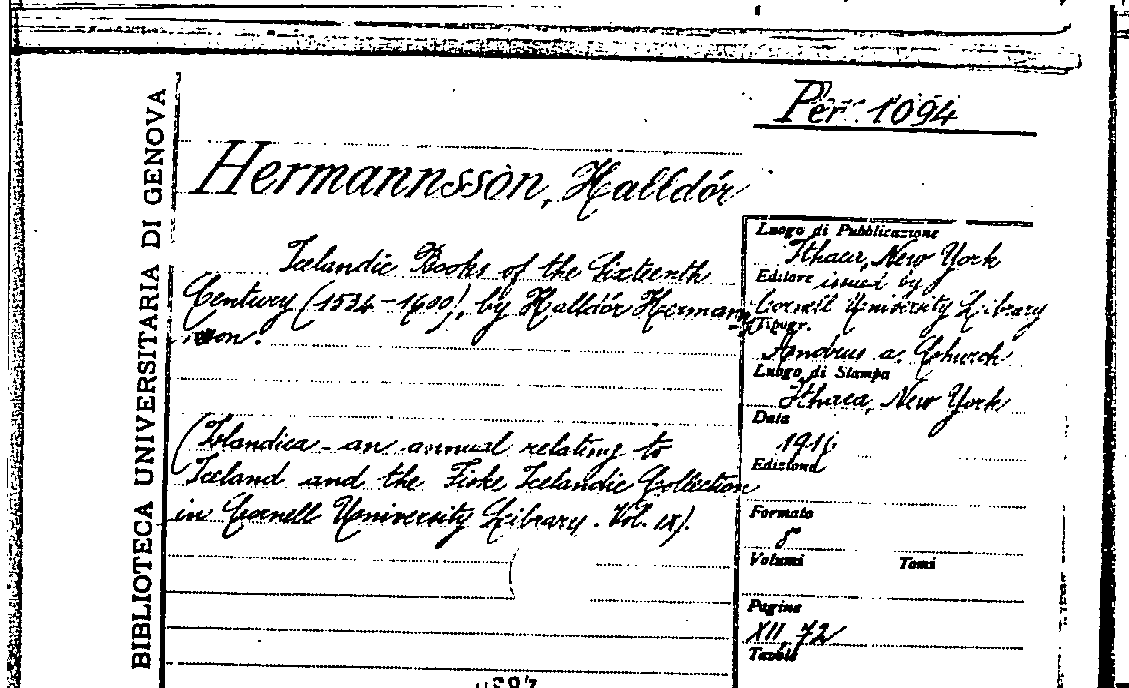 BIBLIOTECA UNIVERSITARIA DI GENOVA
Per. 1094
Hermannsson, Halldór
Icelandic Books of the Sixteenth
Century (1534-1600), by Halldór Hermann
sson.
(Islandica - an annual relating to
Iceland and the Fiske Icelandic Collection
in Cornell University Library. Vol. IX).
Luogo di Pubblicazione
Ithaca, New York
Editore issued by
Cornell University Library
Tipogr.
Andrus a. Church
Luogo di Stampa
Ithaca, New York
Data
1916
Edizione
Formato
8°
Volumi Tomi
Pagine
XII, 72
Tavole